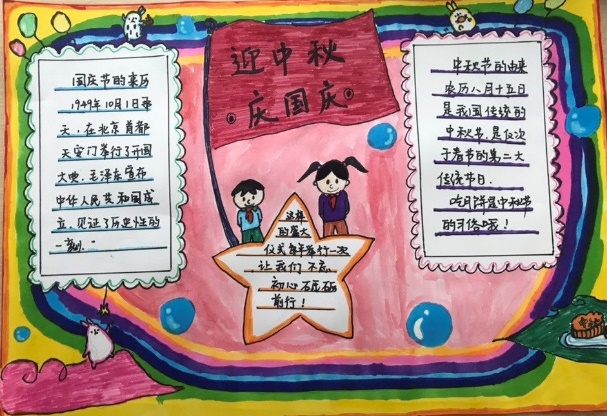 迎中秋
庆国庆
国庆节的来历
1949年10月1日
天,在北京首都
天安门举行了开国
大典,毛泽东宣布
中华人民共和国成
立,见证了历史性的
一刻。
这样
的盛大
仪式每年举行一次
让我们不忘
初心砥砺
前行!
中秋节的由来
农历八月十五日
是我国传统的
中秋节,是仅次
于春节的第二大
传统节日。
吃月饼是中秋节
的习俗哦!